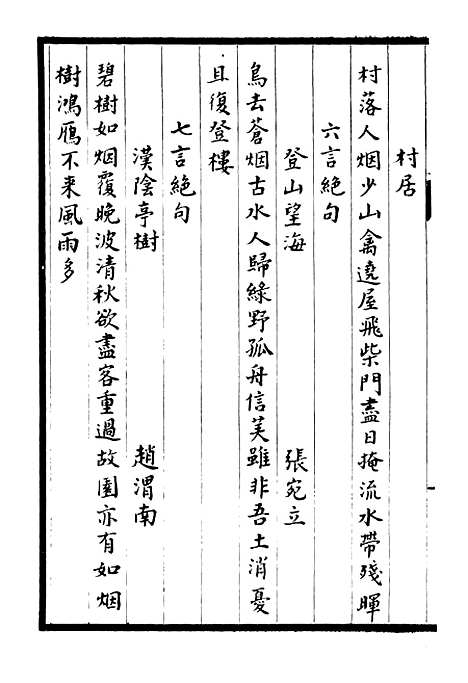 村居
村落人烟少山禽遶屋飛柴門盡日掩流水帶殘暉
六言絕句
登山望海 張宛立
鳥去蒼烟古水人歸綠野孤舟信美雖非吾土消憂
且復登樓
七言絕句
漢陰亭樹 趙渭南
碧樹如烟覆晚波清秋欲盡客重過故園亦有如烟
樹鴻鴈不来風雨多